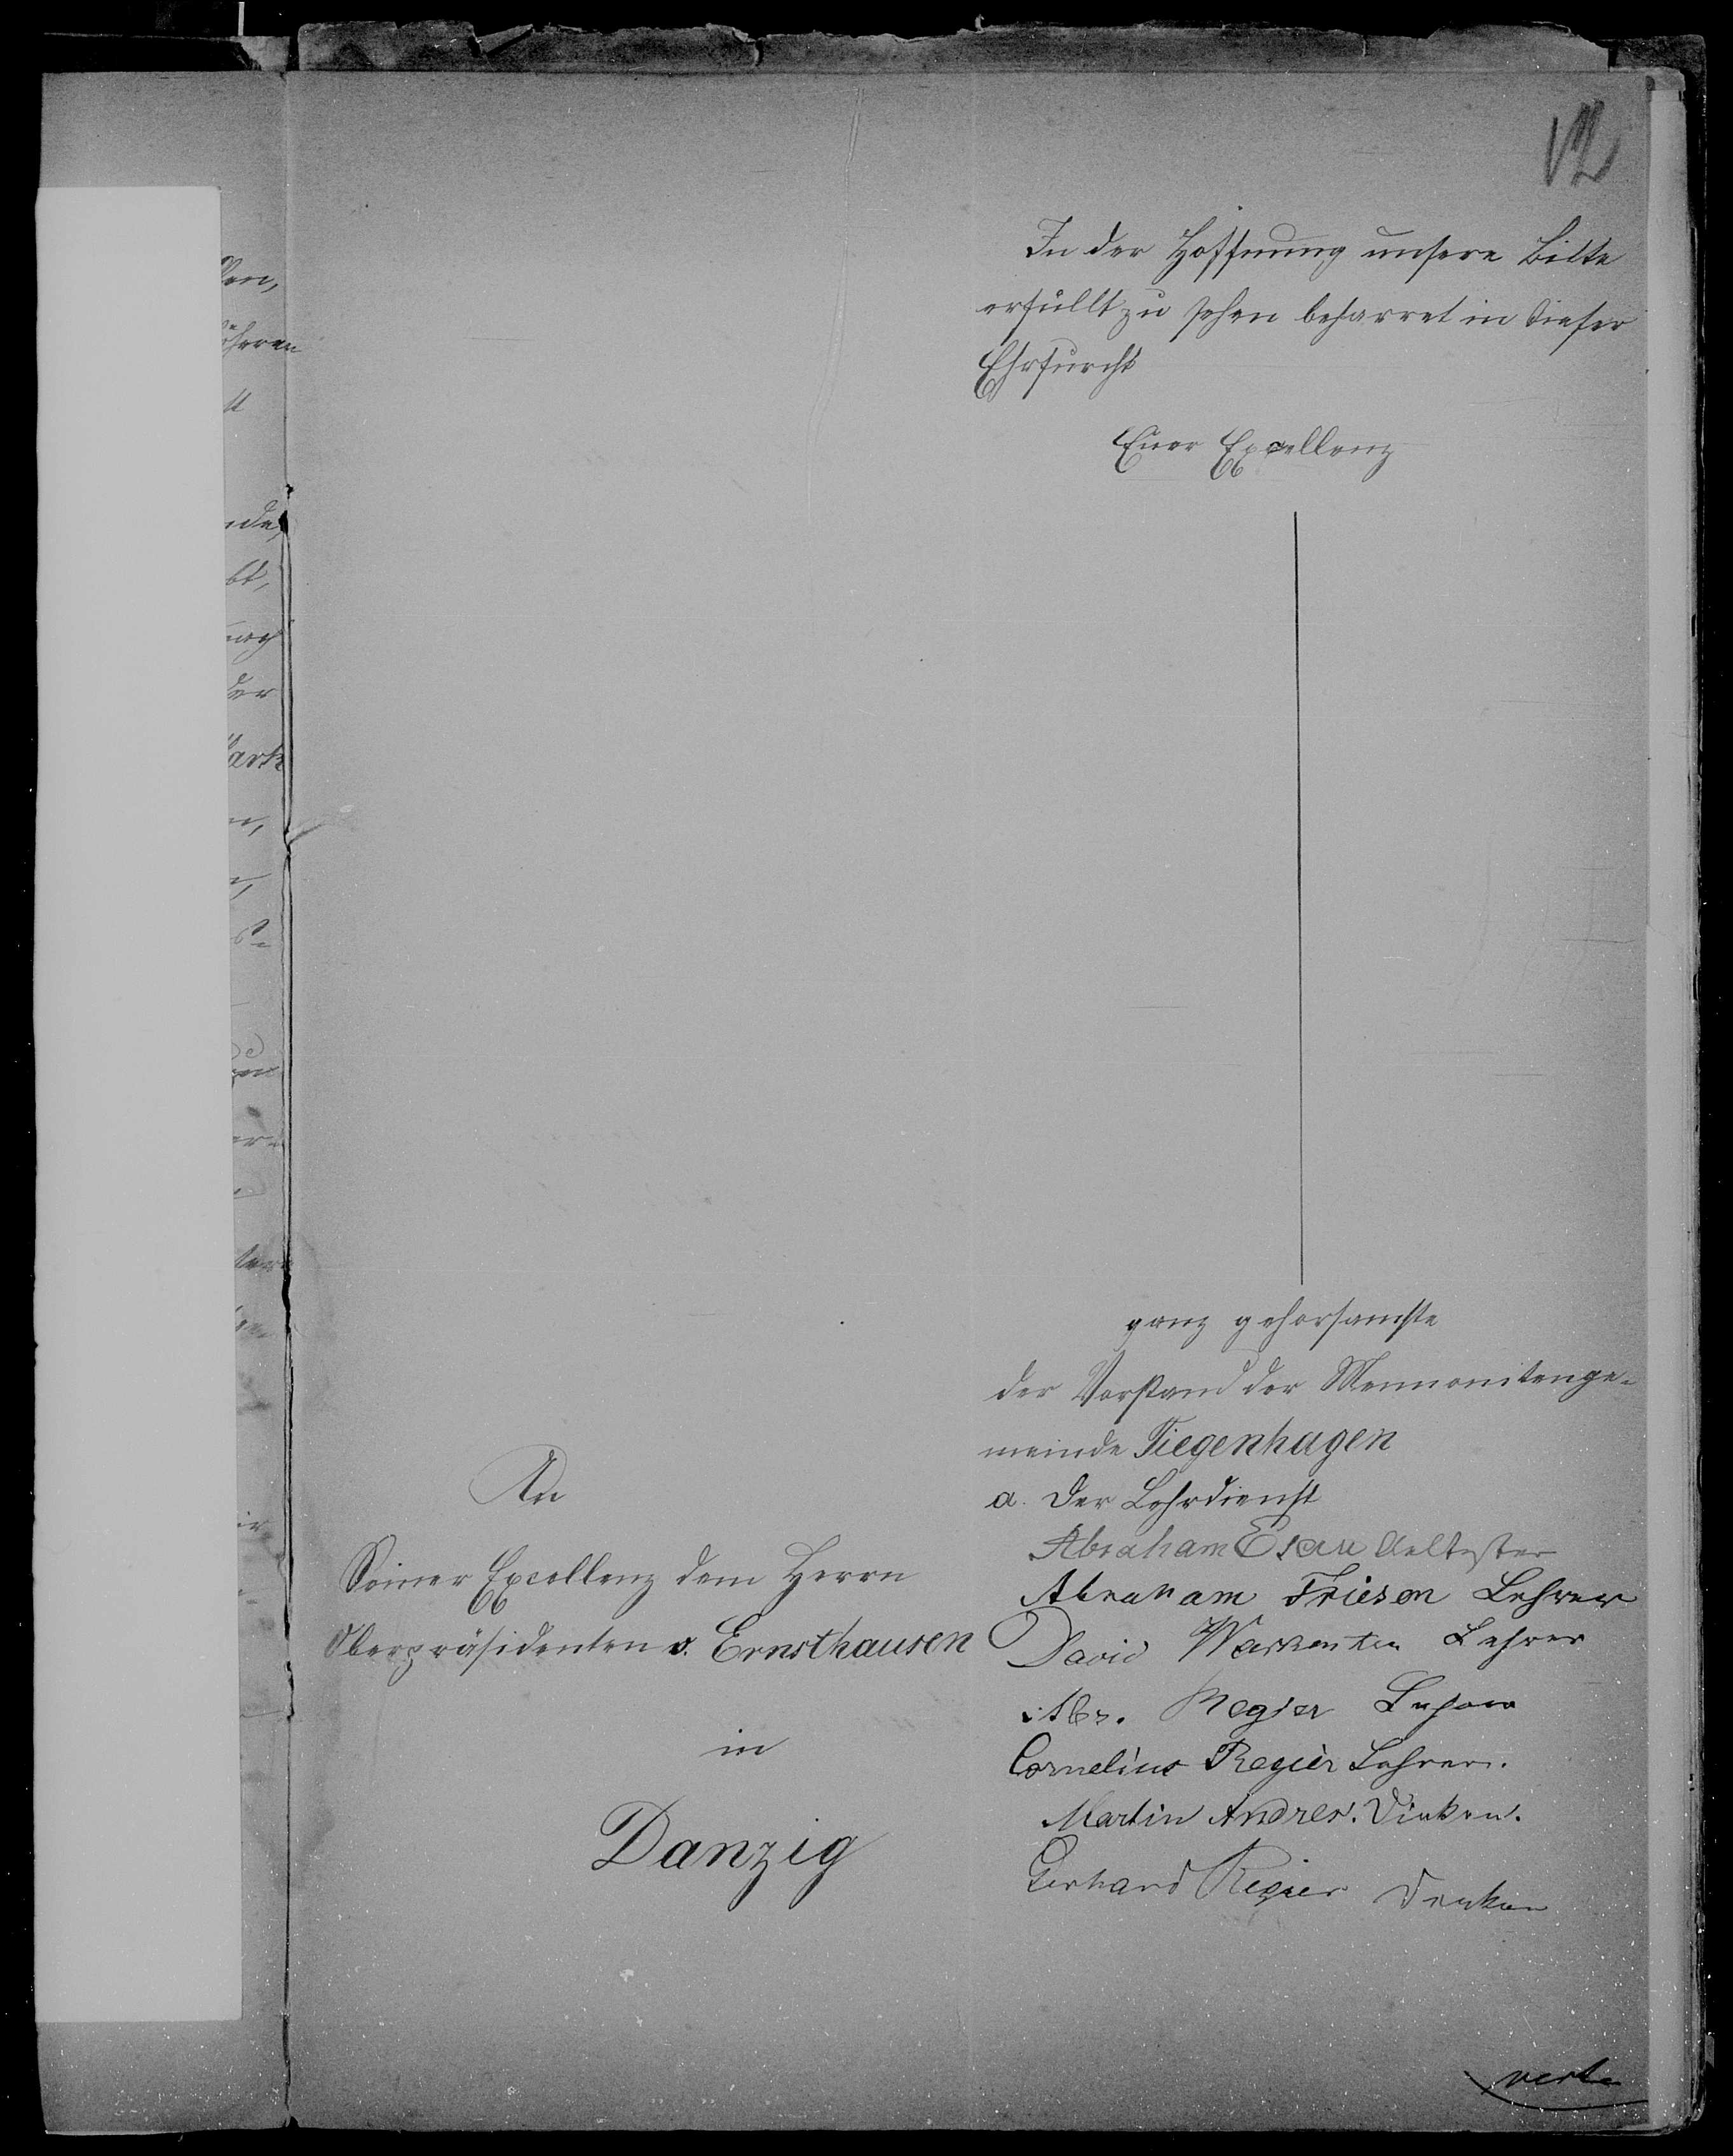 12
In der Hoffnung unsere Bitte
erfüllt zu sehen beharret in tiefer
Ehrfurcht
Euer Excellenz
ganz gehorsamste
der Vorstand der Mennonitenge-
meinde Tiegenhagen
a. Der Lehrdienst
Abraham Esau Aeltester
Abraham Friesen Lehrer
David Warkentin Lehrer
Abr. Regier Lehrer
Cornelius Regier Lehrer.
Martin Andres. Diakon.
Gerhard Regier Diakon
An
Seiner Excellenz dem Herrn
Oberpräsidenten v. Ernsthausen
in
Danzig
verte